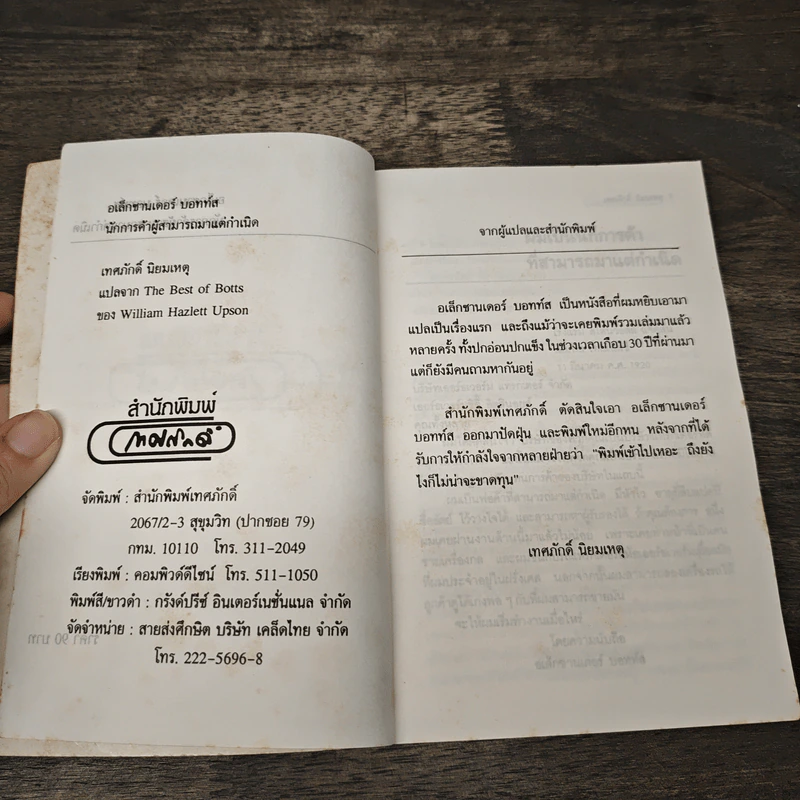 อเล็กซานเดอร์ บอทท์ส
นักการค้าผู้สามารถมาแต่กำเนิด
เทศภักดิ์ นิยมเหตุ
แปลจาก The Best of Botts
ของ William Hazlett Upson
สำนักพิมพ์
เทศภักดิ์
จัดพิมพ์ : สำนักพิมพ์เทศภักดิ์
2067/2-3 สุขุมวิท (ปากซอย 79)
กทม. 10110 โทร. 311-2049
เรียงพิมพ์ : คอมพิวด์ดีไซน์ โทร. 511-1050
พิมพ์สี/ขาวดำ : กรังด์ปรีซ์ อินเตอร์เนชั่นแนล จำกัด
จัดจำหน่าย : สายส่งศึกษิต บริษัท เคล็ดไทย จำกัด
โทร. 222-5696-8
จากผู้แปลและสำนักพิมพ์
อเล็กซานเดอร์ บอทท์ส เป็นหนังสือที่ผมหยิบเอามา
แปลเป็นเรื่องแรก และถึงแม้ว่าจะเคยพิมพ์รวมเล่มมาแล้ว
หลายครั้ง ทั้งปกอ่อนปกแข็ง ในช่วงเวลาเกือบ 30 ปีที่ผ่านมา
แต่ก็ยังมีคนถามหากันอยู่
สำนักพิมพ์เทศภักดิ์ ตัดสินใจเอา อเล็กซานเดอร์
บอทท์ส ออกมาปัดฝุ่น และพิมพ์ใหม่อีกหน หลังจากที่ได้
รับการให้กำลังใจจากหลายฝ่ายว่า "พิมพ์เข้าไปเหอะ ถึงยัง
ไงก็ไม่น่าจะขาดทุน"
เทศภักดิ์ นิยมเหตุ